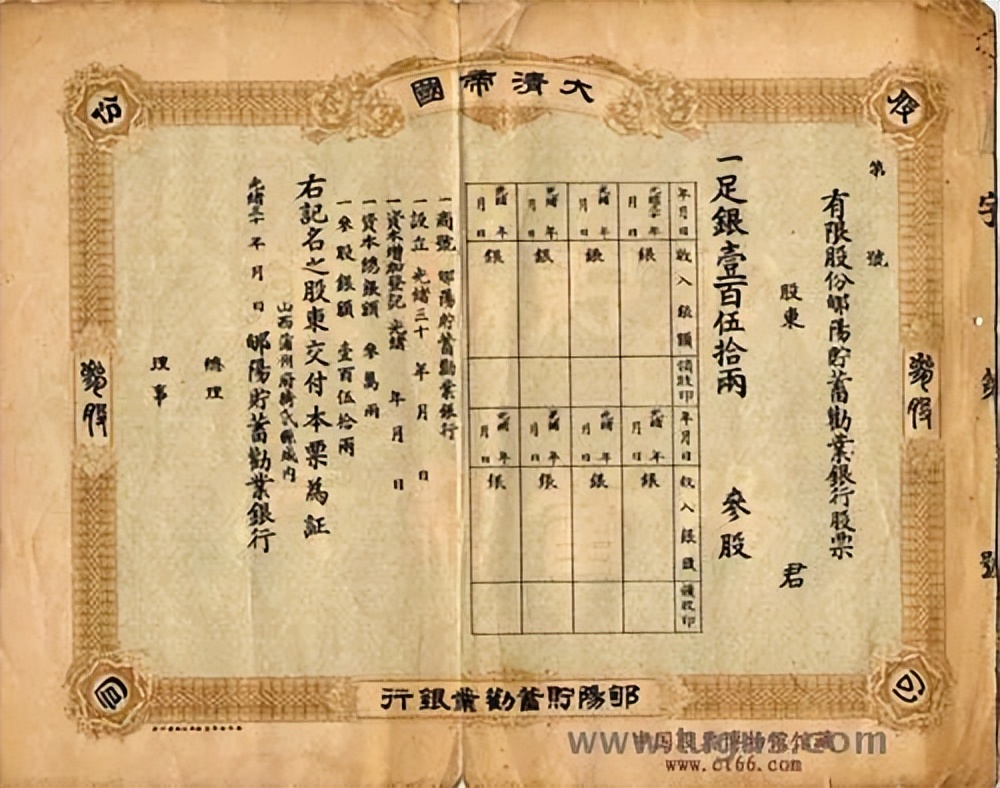 大清帝國
股
份
公
司
第 號
有限股份郇陽貯蓄勸業銀行股票
股東 君
一足銀壹百伍拾兩 參股
年月日 收入銀額 領收印 年月日 收入銀額 領收印
光緒三十年 月 日 銀 光緒 年 月 日 銀
光緒 年 月 日 銀 光緒 年 月 日 銀
光緒 年 月 日 銀 光緒 年 月 日 銀
光緒 年 月 日 銀 光緒 年 月 日 銀
一商號 郇陽貯蓄勸業銀行
一設立 光緒三十 年 月 日
一資本增加登記 光緒 年 月 日
一資本總銀額 參萬兩
一參股銀額 壹百伍拾兩
右記名之股東交付本票為証
山西蒲州府猗氏縣城內
光緒三十 年 月 日 郇陽貯蓄勸業銀行
總理
理事
郇陽貯蓄勸業銀行
字
號
www.ct66.com